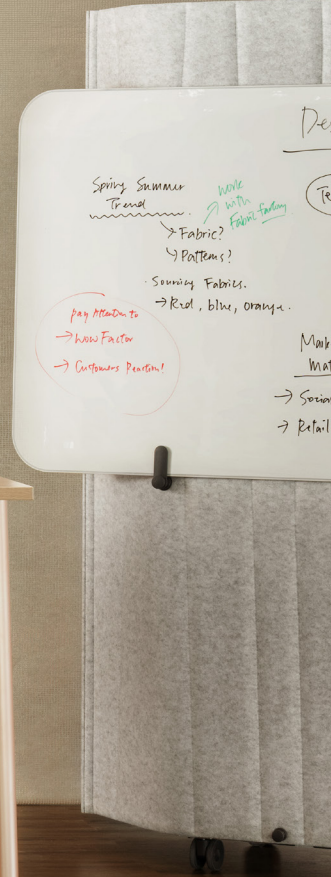 De
Spring Summer
Trend
work
with
Fabric factory
→ Fabric?
→ Patterns?
· Sourcing Fabrics.
→ Red, blue, orange.
Te
pay Attention to
→ wow Factor
→ Customers Reaction!
Mark
mat
→ Socia
→ Retail